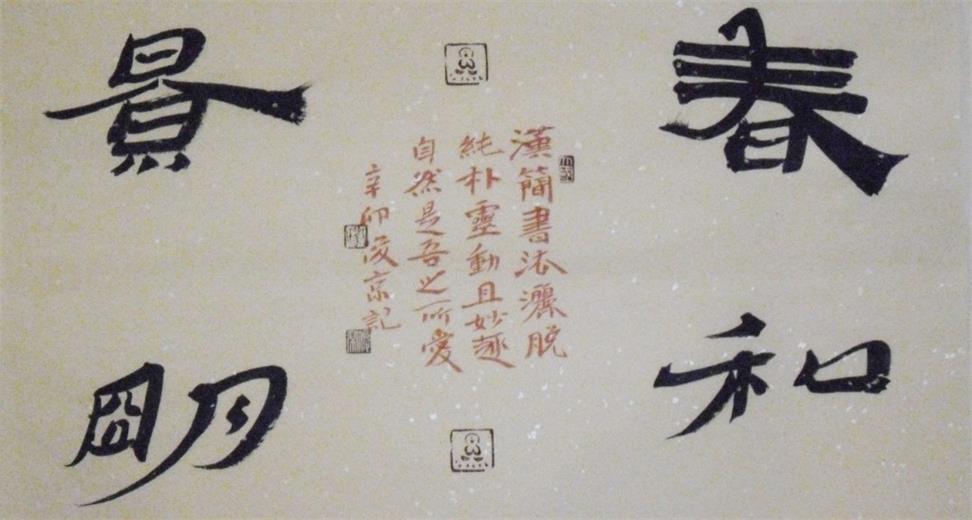 春和
景明
漢簡書法灑脫
純朴靈動且妙趣
自然是吾之所愛
辛卯俊京記